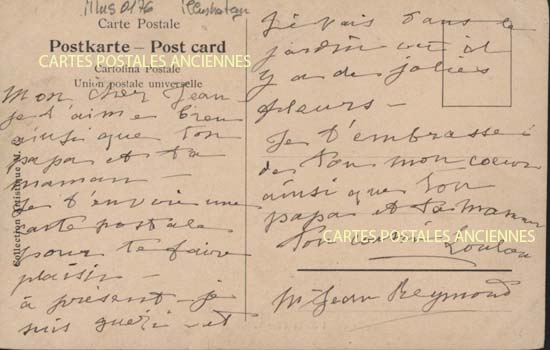 Illus 0176
Carte Postale
Postkarte – Post card
CARTES POSTALES ANCIENNES
Cartolina Postale
Union postale universelle
Collection Artistique
Mon cher Jean
je t'aime bien
ainsi que ton
papa et ta
maman –
Je t'envoie une
carte postale
pour te faire
plaisir –
à présent je
suis guéri – et
je vais dans le
jardin où il
y a de jolies
fleurs –
Je t'embrasse
de tou mon coeur
ainsi que ton
papa et ta maman
Ton cousin Loulou
CARTES POSTALES ANCIENNES
Mr Jean Reymond